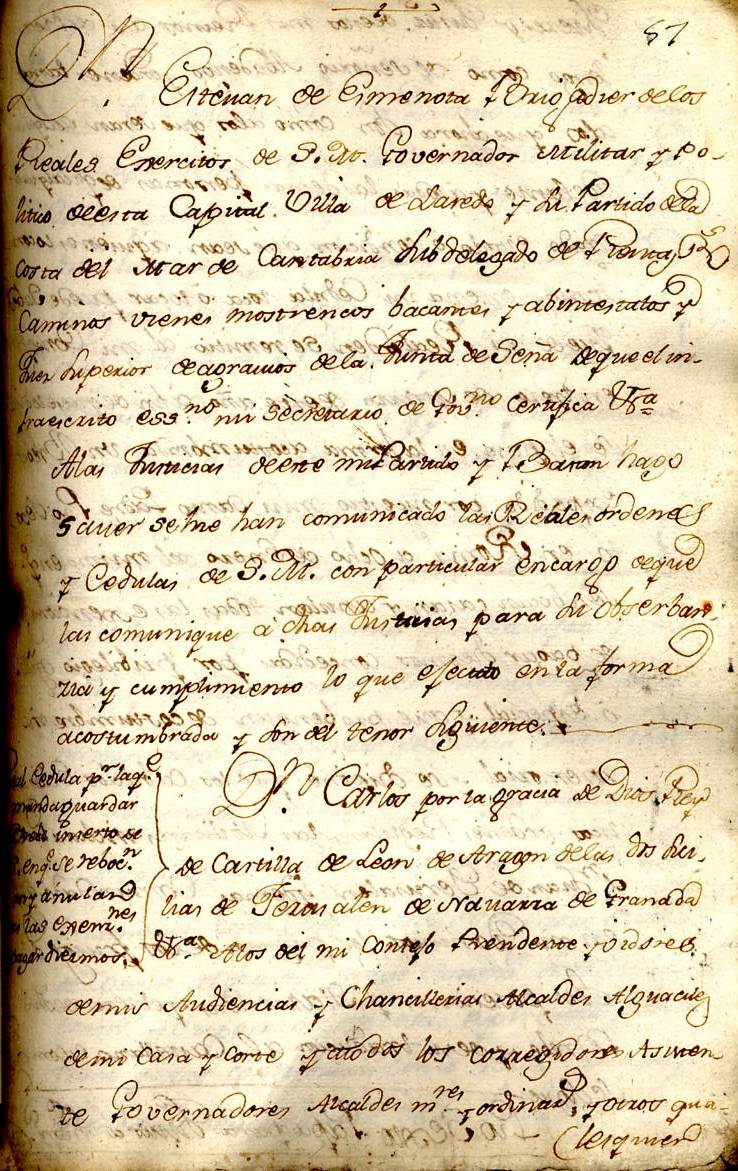 57
Dn.
Estevan de Esmenota Brigadier de los
Reales Exercitos de S. M. Governador Militar y Po-
litico de esta Capital Villa de Laredo y su Partido de la
Costa del Mar de Cantabria Subdelegado de Rentas,
Caminos vienes mostrencos bacantes y abintestatos y
Juez Superior de agravios de la Junta de Seña de que el in-
fraescrito ess.no mi Secretario de Gov.no certifica &a
A las Justicias de este mi Partido y Baston hago
saver se me han comunicado las Reales ordenes
y Cedulas de S. M. con particular encargo de que
las comunique a dhas Justicias para su obserban-
zia y cumplimiento lo que efecuto en la forma
acostumbrada y son del tenor siguiente.
Real Cedula pr. la qe
manda guardar
inserto se
enq.e se reboc.n
y anulan
las exem.nes
pagar diezmos,
Dn. Carlos por la gracia de Dios Rey
de Castilla de Leon de Aragon de las dos Sici-
lias de Jerusalen de Navarra de Granada
&a. A los del mi Consejo Presidente y oidores
de mis Audiencias y Chancillerias Alcaldes Alguaciles
de mi Casa y Corte y a todos los corregidores Asisten-
te Governadores Alcaldes m.res y ordinar.s y otros qua-
lesquier